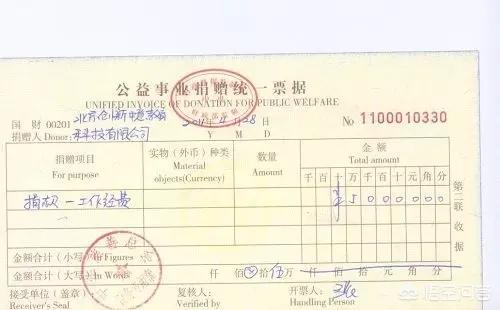 公益事业捐赠统一票据
UNIFIED INVOICE OF DONATION FOR PUBLIC WELFARE
国财 00201
捐赠人 Donor: 科技有限公司 2011 4 28 № 1100010330
Y M D
捐赠项目 实物（外币）种类 数量 金额
For purpose Material Amount Total amount
objects(Currency) 千百十万千百十元角分
捐款一工作经费 ¥50000000
金额合计（小写）In Figures
金额合计（大写）In Words 仟佰拾伍万仟佰拾元角分
接受单位（盖章） 复核人： 开票人：
Receiver's Seal Verified by Handling Person
第二联 收据
悟空问答